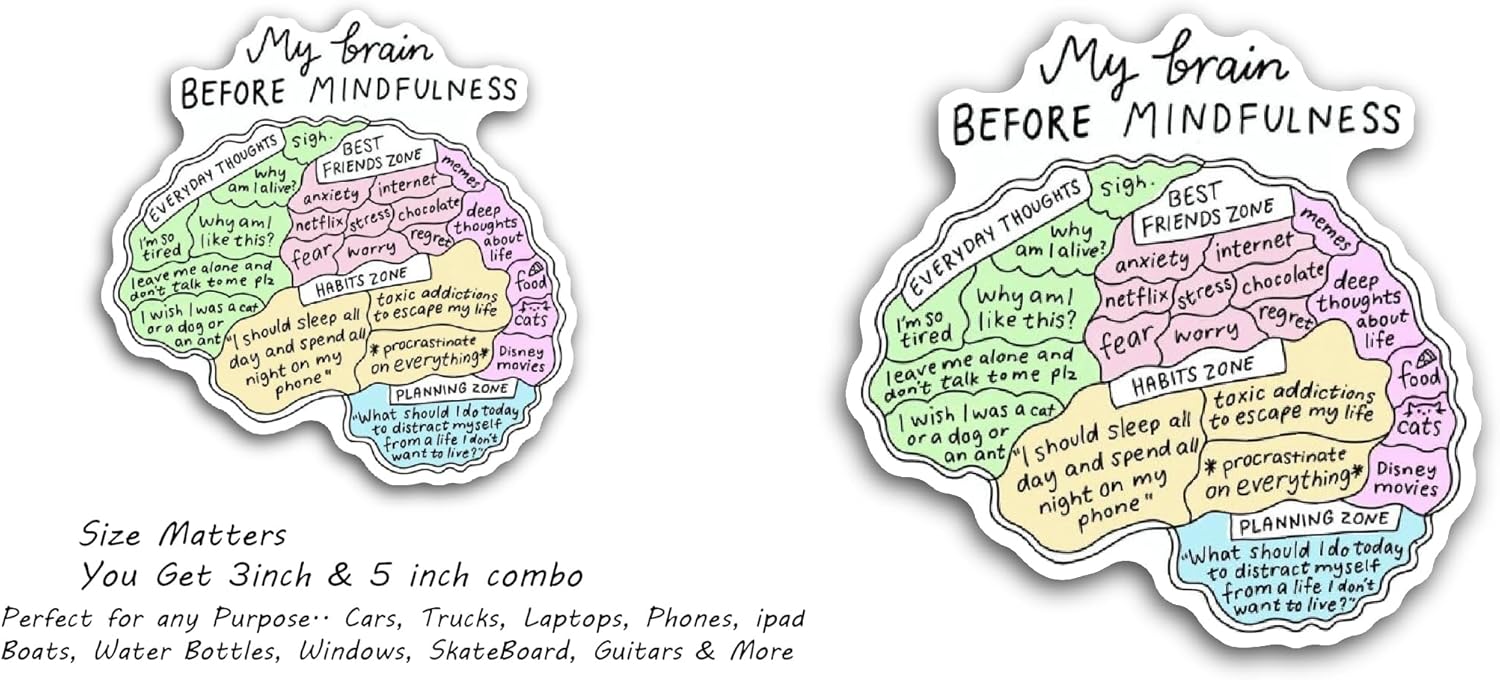 My brain
BEFORE MINDFULNESS
EVERYDAY THOUGHTS
sigh.
why
am I alive?
Why am I
like this?
I'm so
tired
leave me alone and
don't talk to me plz
I wish I was a cat
or a dog or
an ant
BEST
FRIENDS ZONE
anxiety
internet
netflix
stress
chocolate
fear
worry
regret
memes
deep
thoughts
about
life
food
cats
Disney
movies
HABITS ZONE
"I should sleep all
day and spend all
night on my
phone"
toxic addictions
to escape my life
*procrastinate
on everything*
PLANNING ZONE
"What should I do today
to distract myself
from a life I don't
want to live?"
Size Matters
You Get 3inch & 5 inch combo
Perfect for any Purpose.. Cars, Trucks, Laptops, Phones, ipad
Boats, Water Bottles, Windows, SkateBoard, Guitars & More
My brain
BEFORE MINDFULNESS
EVERYDAY THOUGHTS
sigh.
why
am I alive?
Why am I
like this?
I'm so
tired
leave me alone and
don't talk to me plz
I wish I was a cat
or a dog or
an ant
BEST
FRIENDS ZONE
anxiety
internet
netflix
stress
chocolate
fear
worry
regret
memes
deep
thoughts
about
life
food
cats
Disney
movies
HABITS ZONE
"I should sleep all
day and spend all
night on my
phone"
toxic addictions
to escape my life
*procrastinate
on everything*
PLANNING ZONE
"What should I do today
to distract myself
from a life I don't
want to live?"